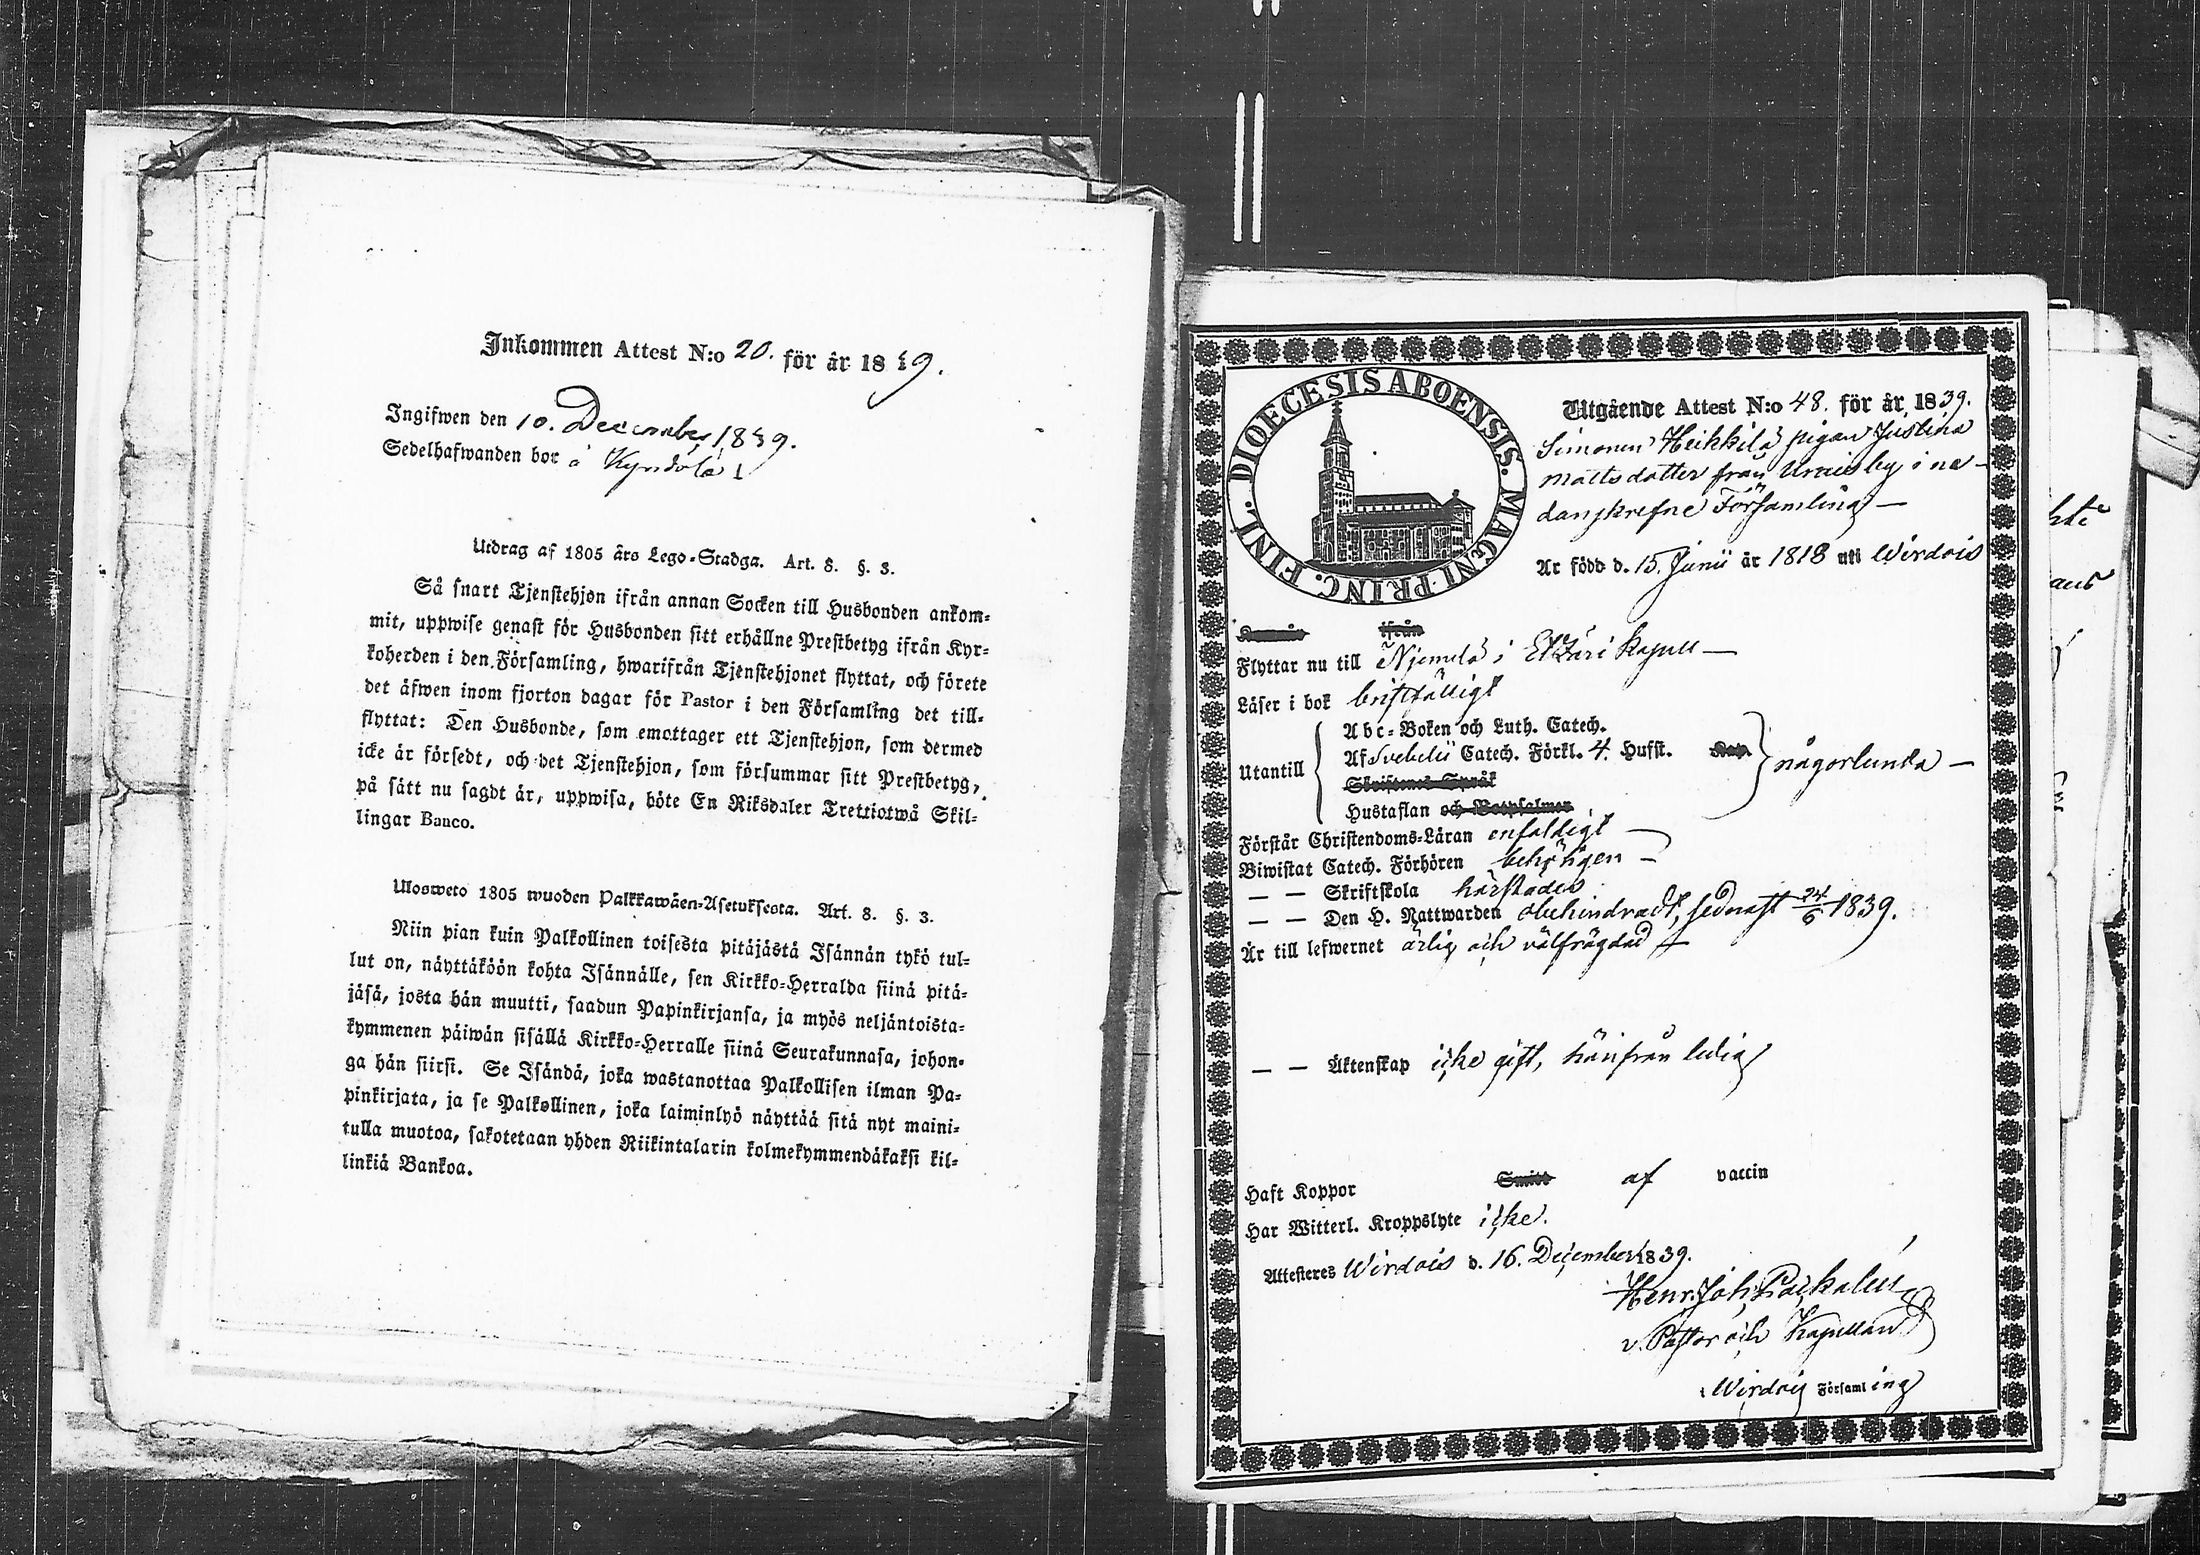 Inkommen Attest N:o 20. för år 1839.
Ingifwen den 10. December 1839.
Sedelhafwanden bor å
Utdrag af 1805 års Lego-Stadga. Art. 8. §. 3.
Så snart Tjenstehjon ifrån annan Socken till Husbonden ankom-
mit, uppwise genast för Husbonden sitt erhållne Prestbetyg ifrån Kyr-
koherden i den Församling, hwarifrån Tjenstehjonet flyttat, och förete
det äfwen inom fjorton dagar för Pastor i den Församling det till-
flyttat: Den Husbonde, som emottager ett Tjenstehjon, som dermed
icke är försedt, och det Tjenstehjon, som försummar sitt Prestbetyg,
på sätt nu sagdt är, uppwisa, böte En Riksdaler Trettiotwå Skil-
lingar Banco.
Ulosweto 1805 wuoden Palkkawäen-Asetuksesta. Art. 8. §. 3.
Niin pian kuin Palkollinen toisesta pitäjästä Isännän tykö tul-
lut on, näyttäköön kohta Isännälle, sen Kirkko-Herralda siinä pitä-
jäsä, josta hän muutti, saadun Papinkirjansa, ja myös neljäntoista-
kymmenen päiwän sisällä Kirkko-Herralle siinä Seurakunnasa, johon-
ga hän siirsi. Se Isändä, joka wastanottaa Palkollisen ilman Pa-
pinkirjata, ja se Palkollinen, joka laiminlyö näyttää sitä nyt maini-
tulla muotoa, sakotetaan yhden Riikintalarin kolmekymmendäkaksi kil-
linkiä Bankoa.
DIOECESIS ABOENSIS. MAGNI PRINC. FINL.
Utgående Attest N:o 48. för år 1839.
Simonen Heikkilä pigan Justina
Mattsdotter från Urais by i ne-
danskrefne Församling —
Är född d. 15. Junii år 1818 uti Wirdois
ifrån
Flyttar nu till Njemelä i Etzäri Kapell —
Läser i bok bristfälligt
Utantill
Abc-Boken och Luth. Catech.
Af Svebelii Catech. Förkl. 4. Hufst. Kap.
Skriftenes Språk
Hustaflan och Botpsalmer
någorlunda —
Förstår Christendoms-Läran enfaldigt —
Biwistat Catech. Förhören behörigen —
— — Skriftskola härstädes
— — Den H. Nattwarden obehindradt, sednast 24/6 1839.
Är till lefwernet ärlig och välfrägdad —
— — Äktenskap icke gift, härifrån ledig
Haft Koppor Smitt af vaccin
Har Witterl. Kroppslyte icke.
Attesteres Wirdois d. 16. December 1839.
Henr. Joh.
v. Pastor och Kapellan
i Wirdois Församling